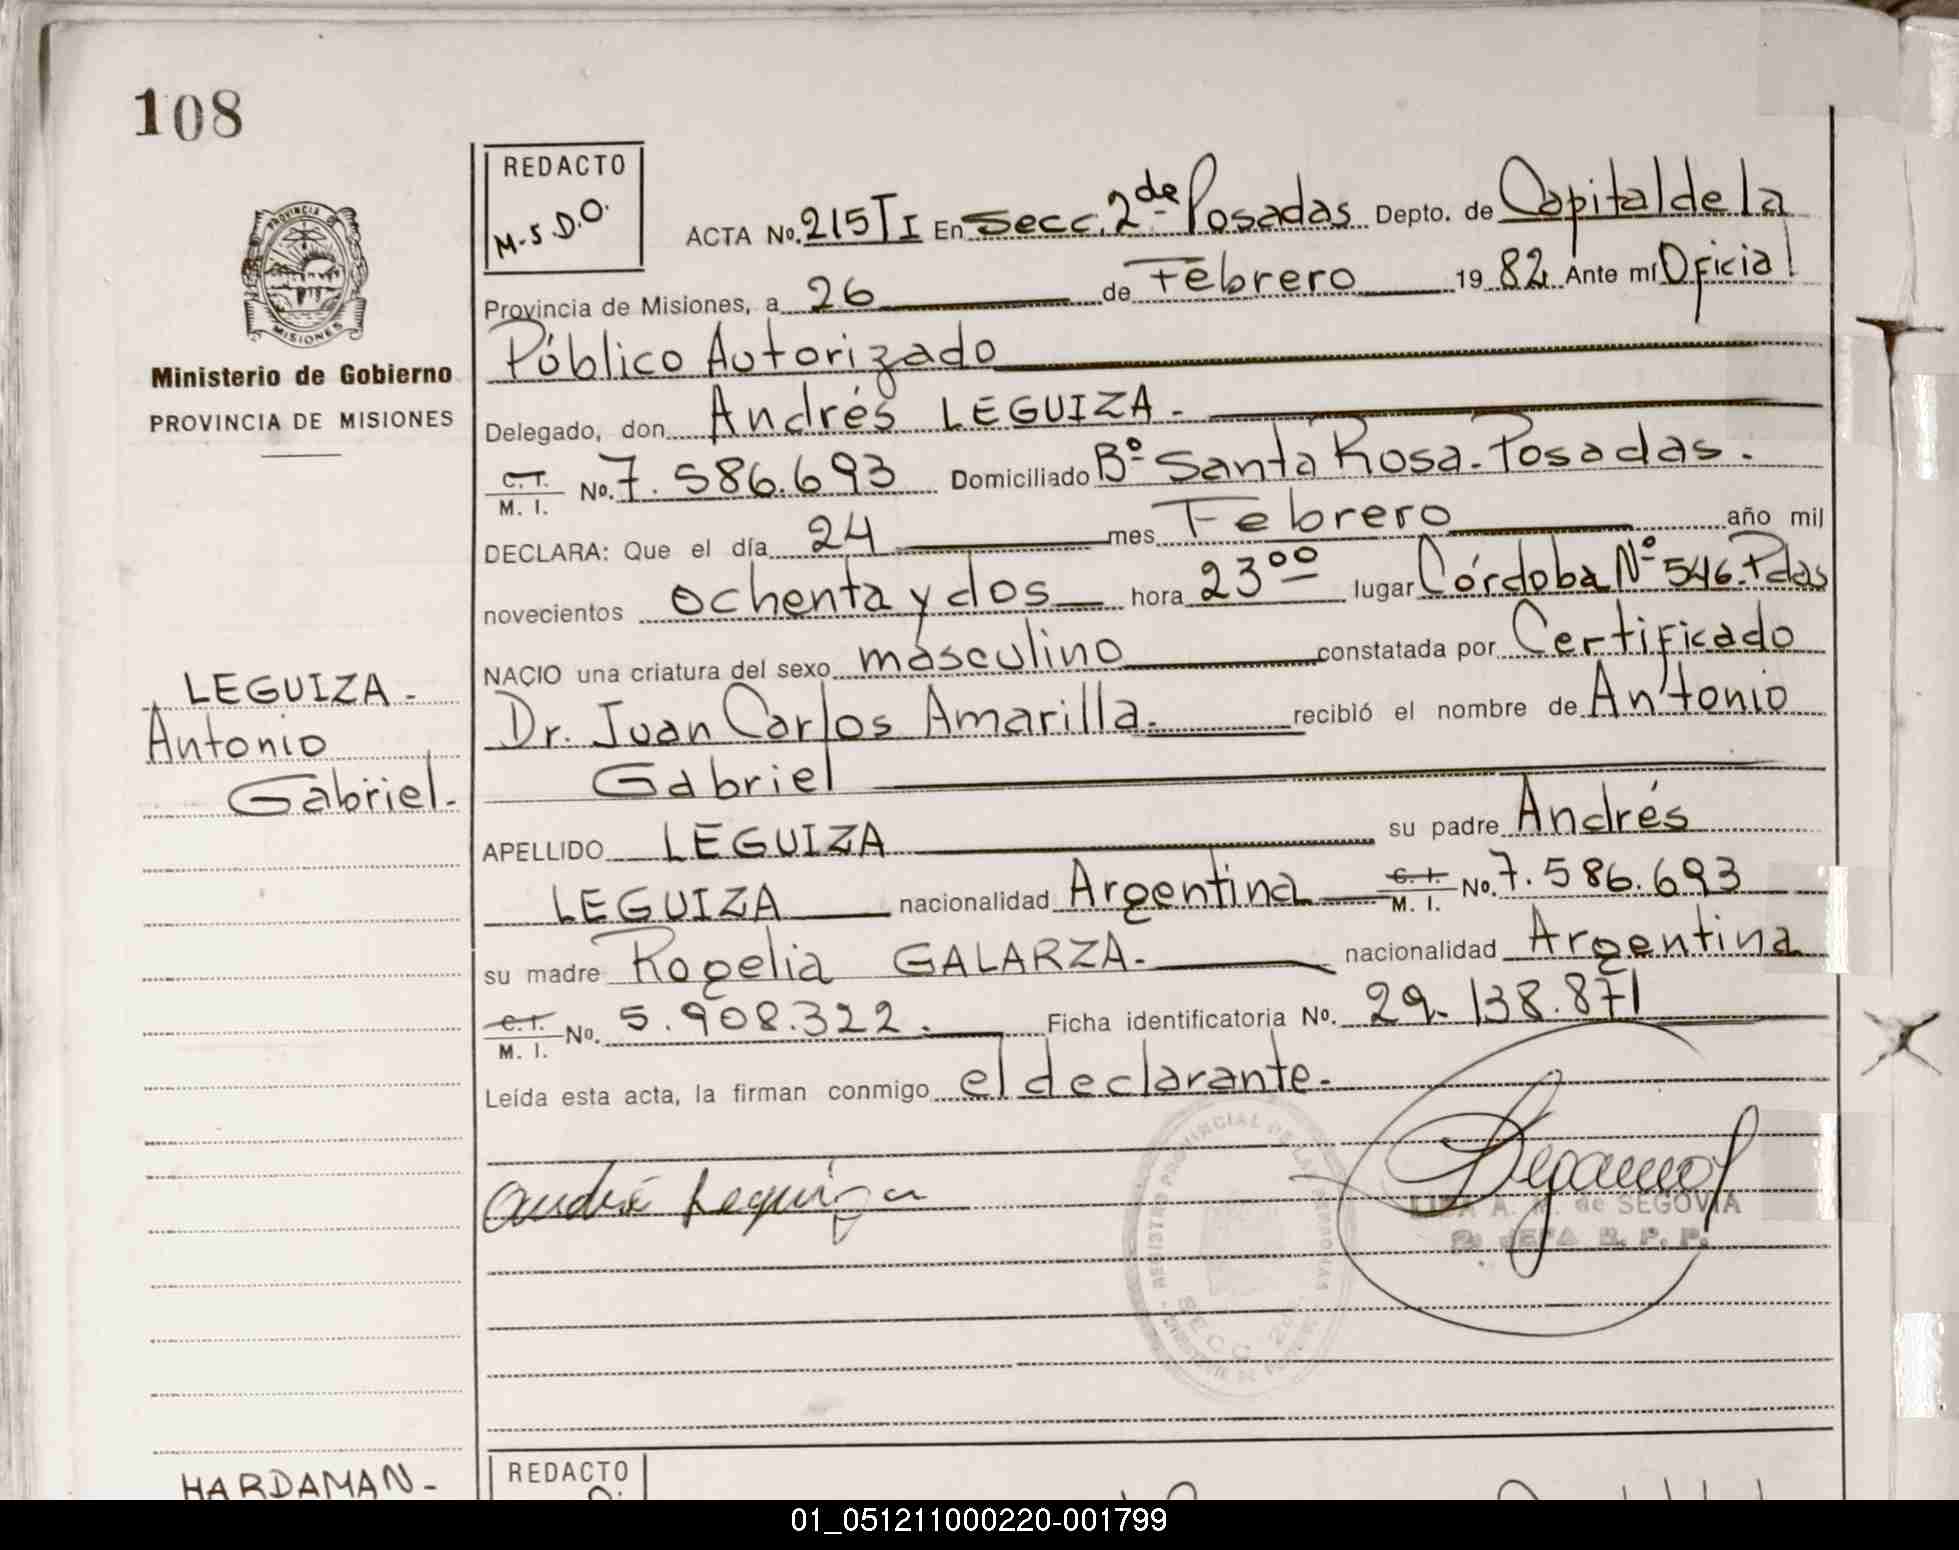 108
REDACTO
M-S.D.O.
ACTA No. 215 TI En Secc. 2da Posadas Depto. de Capital de la
Provincia de Misiones, a 26 de Febrero 1982 Ante mí Oficial
Público Autorizado
Delegado, don Andrés LEGUIZA.-
C.I. M. I. No. 7.586.693 Domiciliado Bº Santa Rosa - Posadas.
DECLARA: Que el día 24 mes Febrero año mil
novecientos ochenta y dos hora 23 00 lugar Córdoba Nº 546. Pdas
NACIO una criatura del sexo masculino constatada por Certificado
Dr. Juan Carlos Amarilla. recibió el nombre de Antonio
Gabriel
APELLIDO LEGUIZA su padre Andrés
LEGUIZA nacionalidad Argentina C.I. M. I. No. 7.586.693
su madre Rogelia GALARZA.- nacionalidad Argentina
C.I. M. I. No. 5.908.322. Ficha identificatoria No. 29.138.871
Leída esta acta, la firman conmigo el declarante.-
André Leguiza
de SEGOVIA
2a JEFA R. P. P.
REGISTRO PROVINCIAL DE LAS PERSONAS
SECC. 2a
PROVINCIA DE
MISIONES
Ministerio de Gobierno
PROVINCIA DE MISIONES
LEGUIZA-
Antonio
Gabriel-
HARDAMAN-
REDACTO
01_051211000220-001799